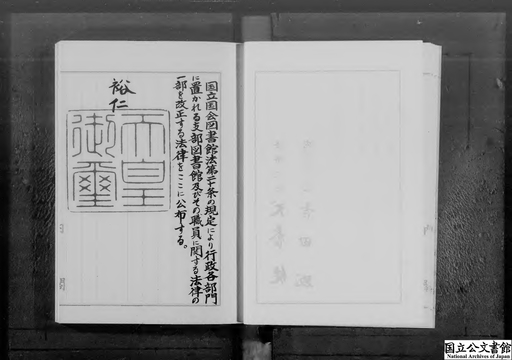 国立国会図書館法第二十条の規定により行政各部門
に置かれる支部図書館及びその職員に関する法律の
一部を改正する法律をここに公布する。
裕仁
天皇
御璽
国立公文書館
National Archives of Japan